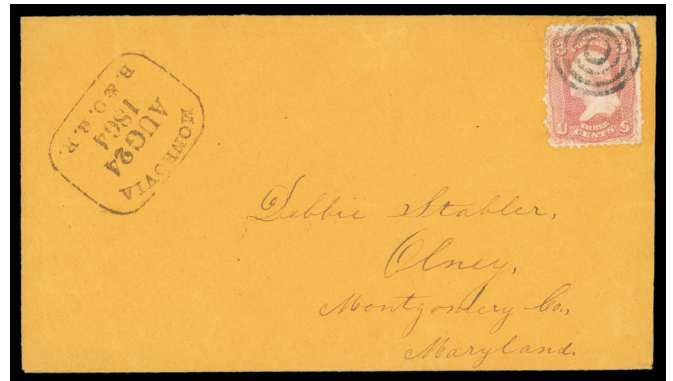 MONROVIA
AUG 24
1864
B. & O. R. R.
U THREE S
CENTS
Debbie Stabler,
Olney,
Montgomery Co.,
Maryland.